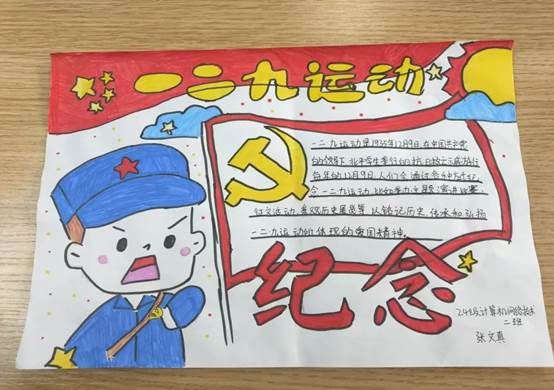 一二九运动
一二九运动是1935年12月9日,在中国共产党
的领导下,北平学生举行的抗日救亡示威游行
每年的12月9日,人们会通过各种方式纪
念一二九运动,比如举办主题演讲比赛
征文活动,参观历史展览等,以铭记历史,传承和弘扬
一二九运动所体现的爱国精神。
纪念
24级计算机网络技术
二班
张文真